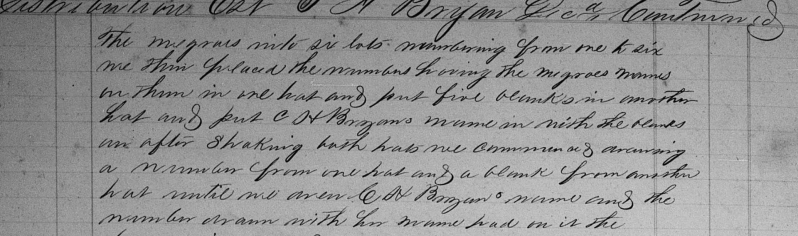 Distribution Est S H Bryan Decd Continued
The negroes into si lots numbering from one to six
we then placed the numbers having the negroes names
on them in one hat and put five blanks in another
hat and put C H Bryans name in with the blanks
an after Shaking both hats we commenced drawing
a number from one hat and a blank from another
hat until we drew C H Bryans name and the
number drawn with her name had on it the